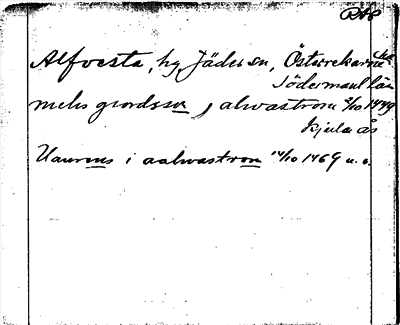 RAP
Alfvesta, by, Jäder sn, Österrekarne hd
Södermanl län
mels gordsson j alwastrom 2/10 1449
Kjula ås
Laurens i aalwastrom 14/10 1469 u. s.